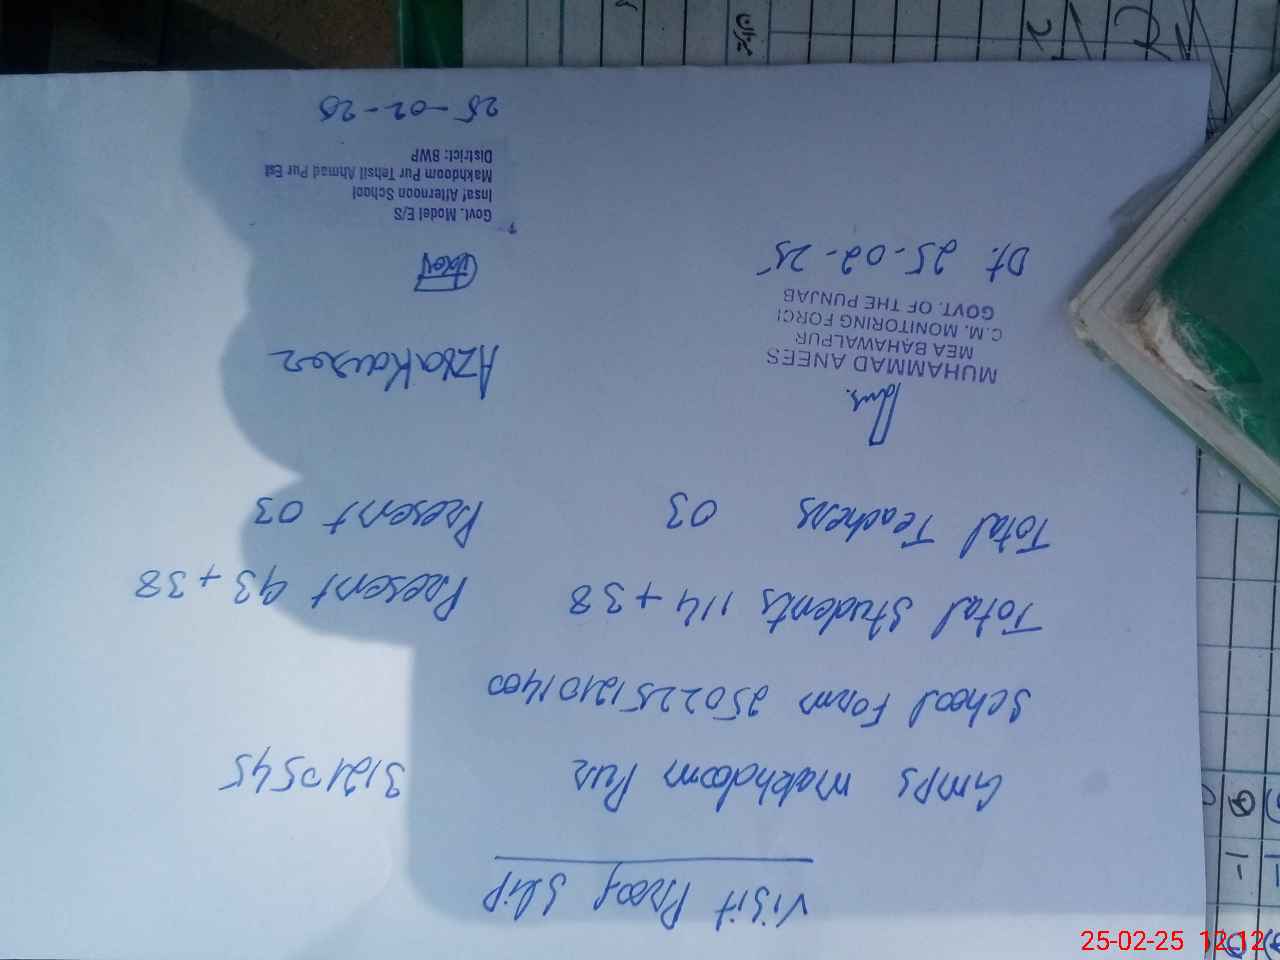 Visit Proof Slip
GMPS Makhdoom Pur 31210545
School Form 25022512101400
Total Students 114 + 38 Present 93 + 38
Total Teachers 03 Present 03
Azra Kauser
MUHAMMAD ANEES
MEA BAHAWALPUR
C.M. MONITORING FORCE
GOVT. OF THE PUNJAB
Dt. 25-02-25
Govt. Model E/S
Insaf Afternoon School
Makhdoom Pur Tehsil Ahmad Pur Est
District: BWP
25-02-25
25-02-25 12:12